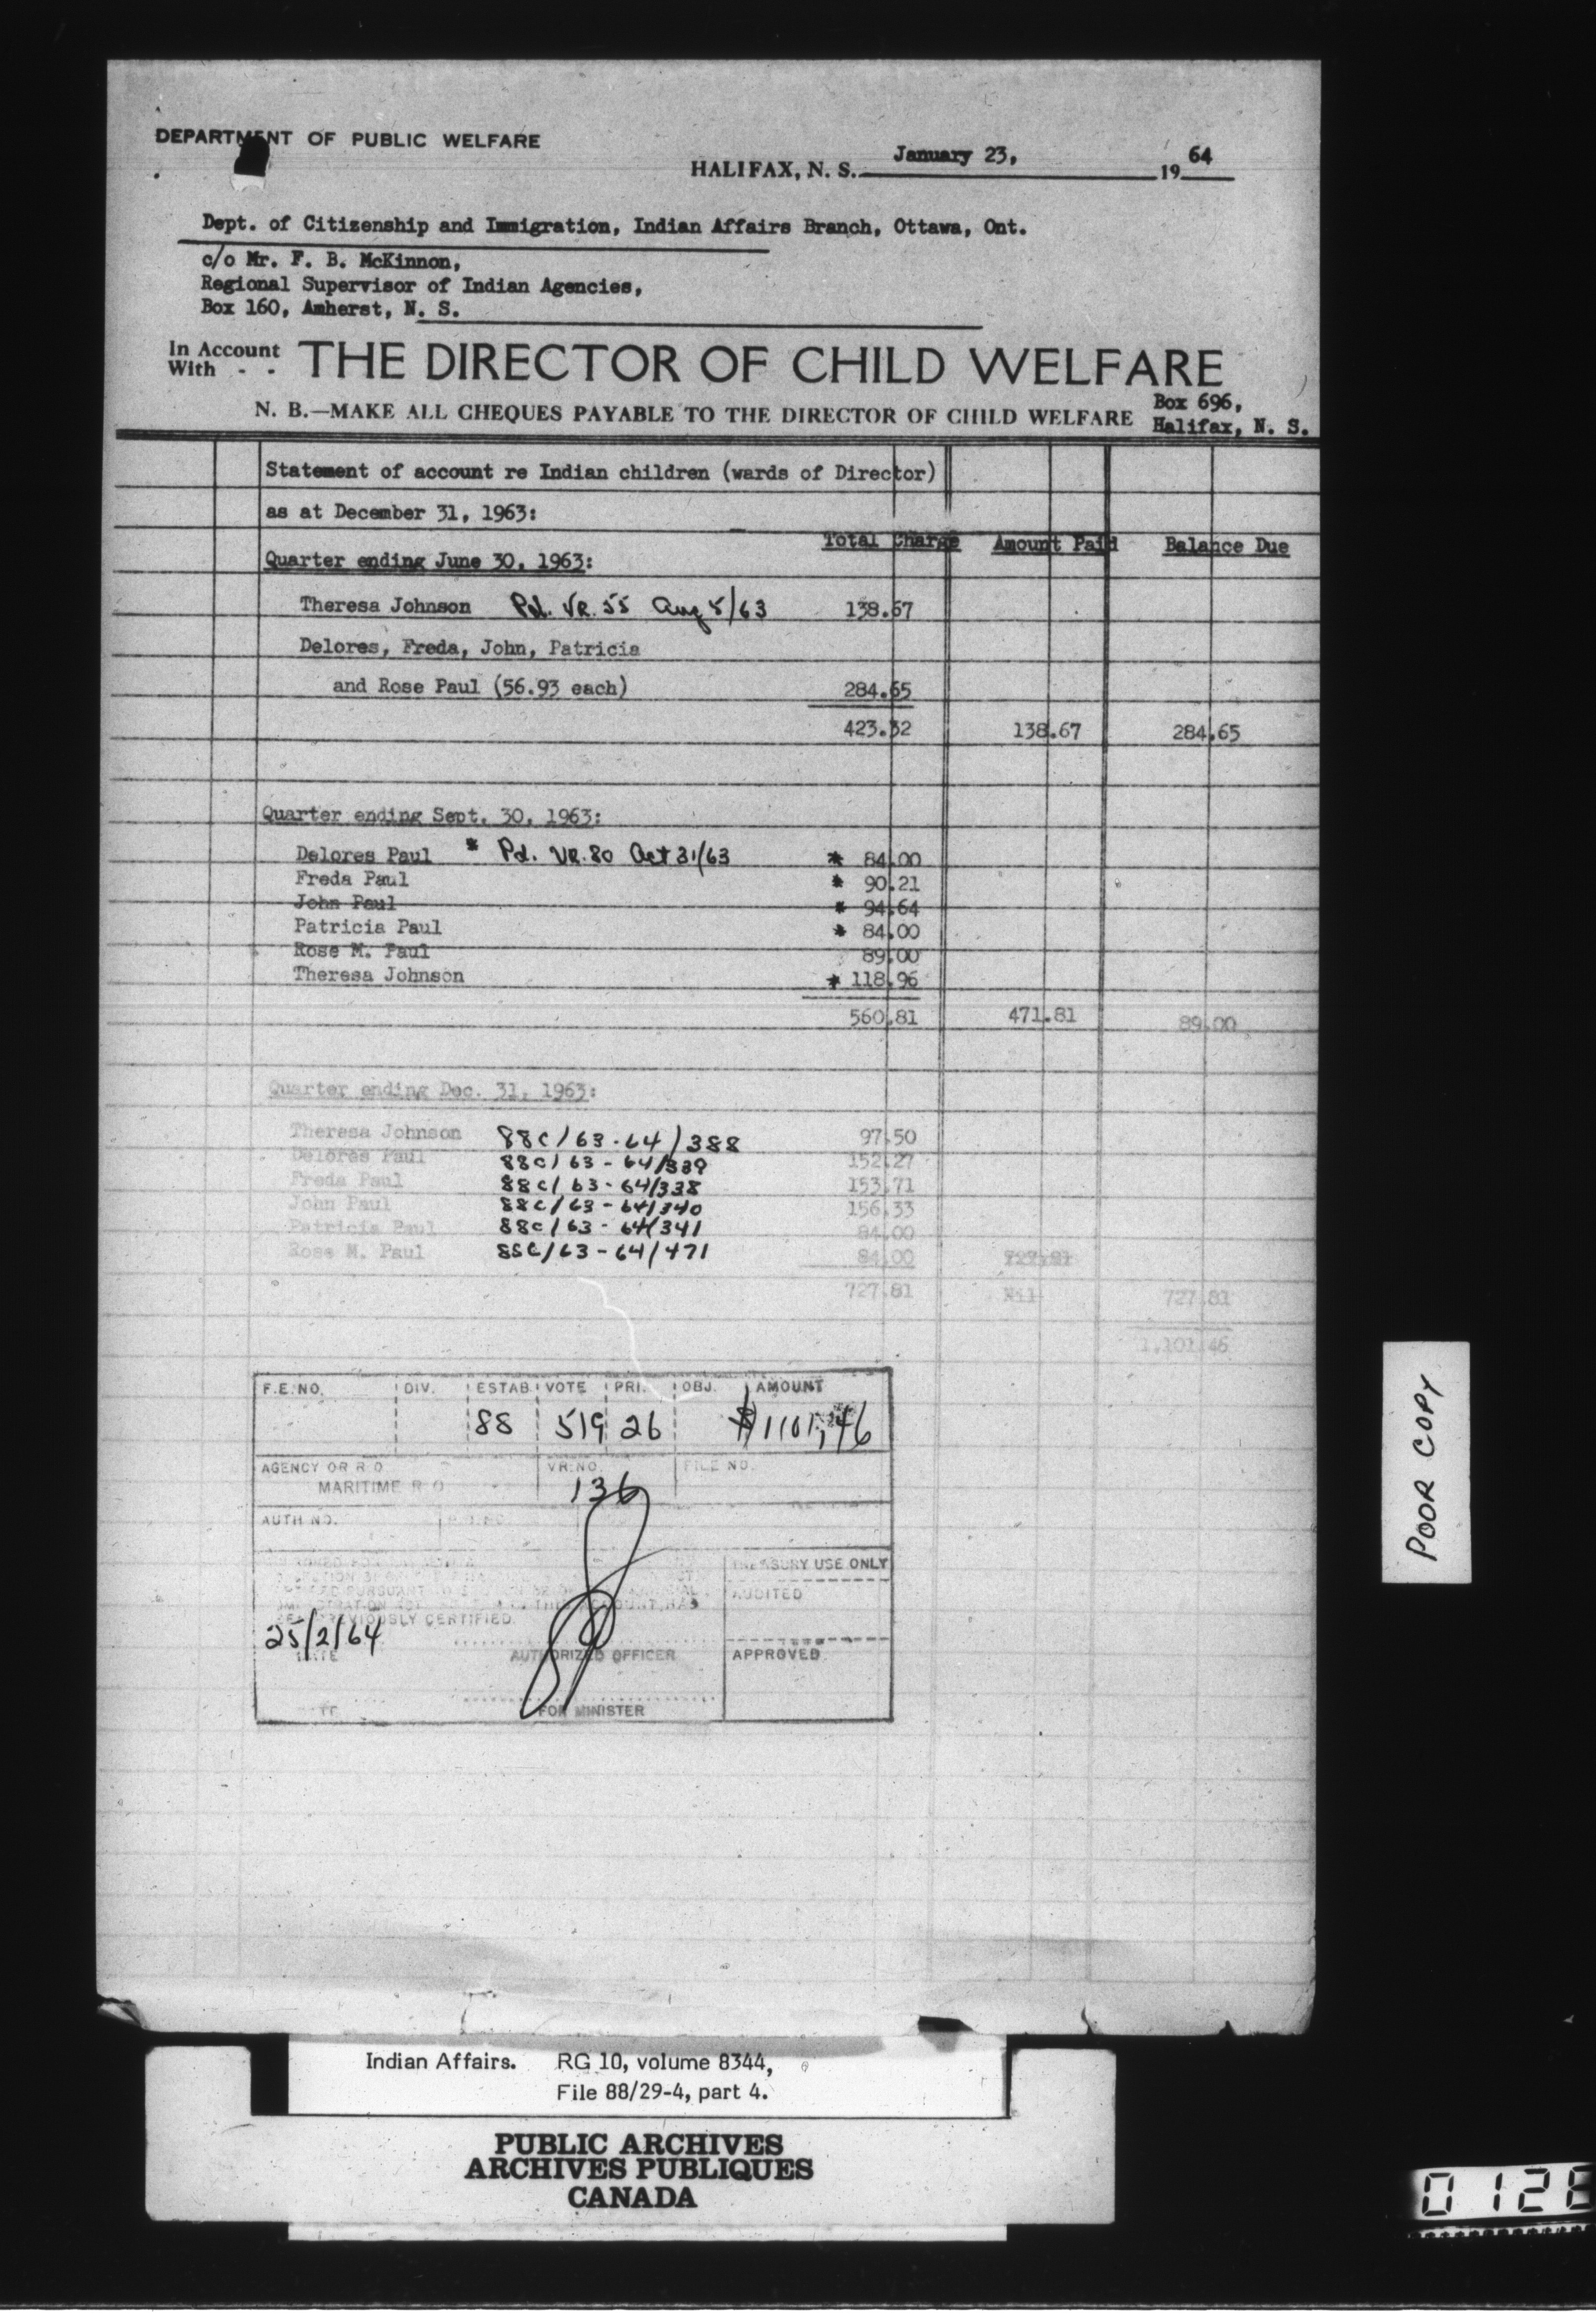 DEPARTMENT OF PUBLIC WELFARE
HALIFAX, N. S. January 23, 1964
Dept. of Citizenship and Immigration, Indian Affairs Branch, Ottawa, Ont.
c/o Mr. F. B. McKinnon,
Regional Supervisor of Indian Agencies,
Box 160, Amherst, N. S.
In Account With - - THE DIRECTOR OF CHILD WELFARE
N. B.—MAKE ALL CHEQUES PAYABLE TO THE DIRECTOR OF CHILD WELFARE Box 696,
Halifax, N. S.
Statement of account re Indian children (wards of Director)
as at December 31, 1963:
Total Charge Amount Paid Balance Due
Quarter ending June 30, 1963:
Theresa Johnson Pd. VR. 55 Aug 5/63 138.67
Delores, Freda, John, Patricia
and Rose Paul (56.93 each) 284.65
423.32 138.67 284.65
Quarter ending Sept. 30, 1963:
Delores Paul * Pd. VR. 80 Oct 31/63 * 84.00
Freda Paul * 90.21
John Paul * 94.64
Patricia Paul * 84.00
Rose M. Paul 89.00
Theresa Johnson * 118.96
560.81 471.81 89.00
Quarter ending Dec. 31, 1963:
Theresa Johnson 88C/63-64/388 97.50
Delores Paul 88C/63-64/339 152.27
Freda Paul 88C/63-64/338 153.71
John Paul 88C/63-64/340 156.33
Patricia Paul 88C/63-64/341 84.00
Rose M. Paul 88C/63-64/471 84.00 727.81
727.81 Nil 727.81
1,101.46
F.E. NO. DIV. ESTAB. VOTE PRI. OBJ. AMOUNT
88 519 26 $1101,46
AGENCY OR R.O. VR. NO. FILE NO.
MARITIME R O 136
AUTH NO.
TREASURY USE ONLY
AUDITED
PREVIOUSLY CERTIFIED.
25/2/64
DATE AUTHORIZED OFFICER APPROVED
FOR MINISTER
POOR COPY
Indian Affairs. RG 10, volume 8344,
File 88/29-4, part 4.
PUBLIC ARCHIVES
ARCHIVES PUBLIQUES
CANADA